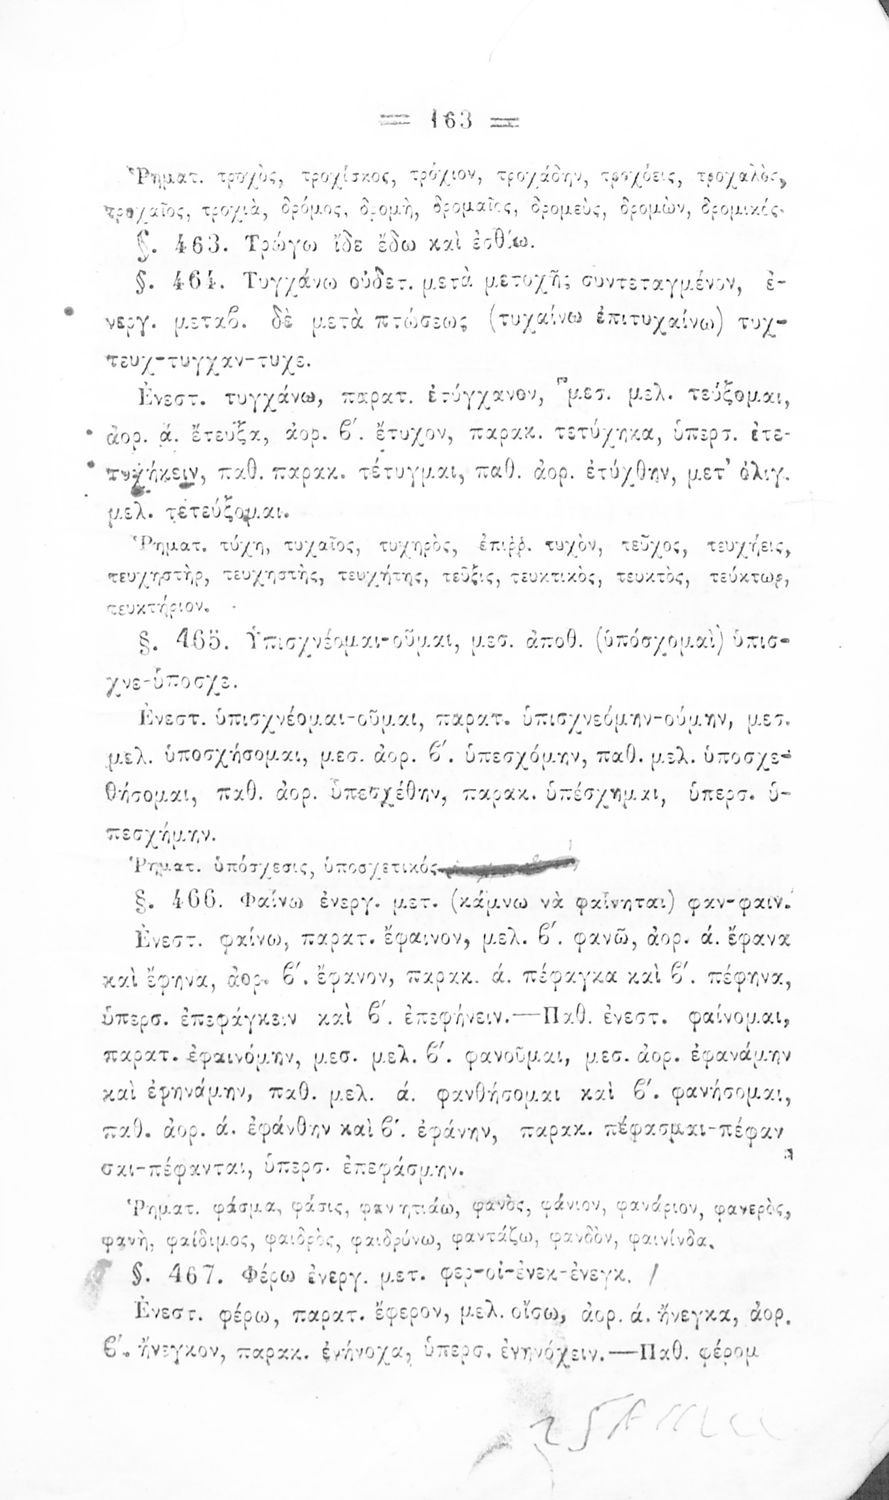 = 163 =
Ῥηματ. τροχὸς, τροχίσκος, τρόχιον, τροχάδην, τροχόεις, τροχαλὸς,
τροχαῖος, τροχιὰ, δρόμος, δρομὴ, δρομαῖος, δρομεὺς, δρομὼν, δρομικός.
§. 463. Τρώγω ἴδε ἔδω καὶ ἐσθίω.
§. 464. Τυγχάνω οὐδετ. μετὰ μετοχῆς συντεταγμένον, ἐ-
νεργ. μεταβ. δὲ μετὰ πτώσεως (τυχαίνω ἐπιτυχαίνω) τυχ-
τευχ-τυγχαν-τυχε.
Ἐνεστ. τυγχάνω, παρατ. ἐτύγχανον, μεσ. μελ. τεύξομαι,
ἀορ. ά. ἔτευξα, ἀορ. β΄. ἔτυχον, παρακ. τετύχηκα, ὑπερσ. ἐτε-
τυχήκειν, παθ. παρακ. τέτυγμαι, παθ. ἀορ. ἐτύχθην, μετ' ὀλιγ.
μελ. τετεύξομαι.
Ῥηματ. τύχη, τυχαῖος, τυχηρὸς, ἐπιῤῥ. τυχὸν, τεῦχος, τευχήεις,
τευχηστὴρ, τευχηστὴς, τευχήτης, τεῦξις, τευκτικὸς, τευκτὸς, τεύκτωρ,
τευκτήριον.
§. 465. Ὑπισχνέομαι-οῦμαι, μεσ. ἀποθ. (ὑπόσχομαὶ) ὑπισ-
χνε-ὑποσχε.
Ἐνεστ. ὑπισχνέομαι-οῦμαι, παρατ. ὑπισχνεόμην-ούμην, μεσ.
μελ. ὑποσχήσομαι, μεσ. ἀορ. β΄. ὑπεσχόμην, παθ. μελ. ὑποσχε-
θήσομαι, παθ. ἀορ. ὑπεσχέθην, παρακ. ὑπέσχημαι, ὑπερσ. ὑ-
πεσχήμην.
Ῥηματ. ὑπόσχεσις, ὑποσχετικός
§. 466. Φαίνω ἐνεργ. μετ. (κάμνω νὰ φαίνηται) φαν-φαιν.
Ἐνεστ. φαίνω, παρατ. ἔφαινον, μελ. β΄. φανῶ, ἀορ. ά. ἔφανα
καὶ ἔφηνα, ἀορ. β΄. ἔφανον, παρακ. ά. πέφαγκα καὶ β΄. πέφηνα,
ὑπερσ. ἐπεφάγκειν καὶ β΄. ἐπεφήνειν.—Παθ. ἐνεστ. φαίνομαι,
παρατ. ἐφαινόμην, μεσ. μελ. β΄. φανοῦμαι, μεσ. ἀορ. ἐφανάμην
καὶ ἐφηνάμην, παθ. μελ. ά. φανθήσομαι καὶ β΄. φανήσομαι,
παθ. ἀορ. ά. ἐφάνθην καὶ β΄. ἐφάνην, παρακ. πέφασμαι-πέφαν
σαι-πέφανται, ὑπερσ. ἐπεφάσμην.
Ῥηματ. φάσμα, φάσις, φανητιάω, φανὸς, φάνιον, φανάριον, φανερὸς,
φανὴ, φαίδιμος, φαιδρὸς, φαιδρύνω, φαντάζω, φανδὸν, φαινίνδα.
§. 467. Φέρω ἐνεργ. μετ. φερ-οἰ-ἐνεκ-ἐνεγκ.
Ἐνεστ. φέρω, παρατ. ἔφερον, μελ. οἴσω, ἀορ. ά. ἤνεγκα, ἀορ.
β΄. ἤνεγκον, παρακ. ἐνήνοχα, ὑπερσ. ἐνηνόχειν.—Παθ. φέρομ